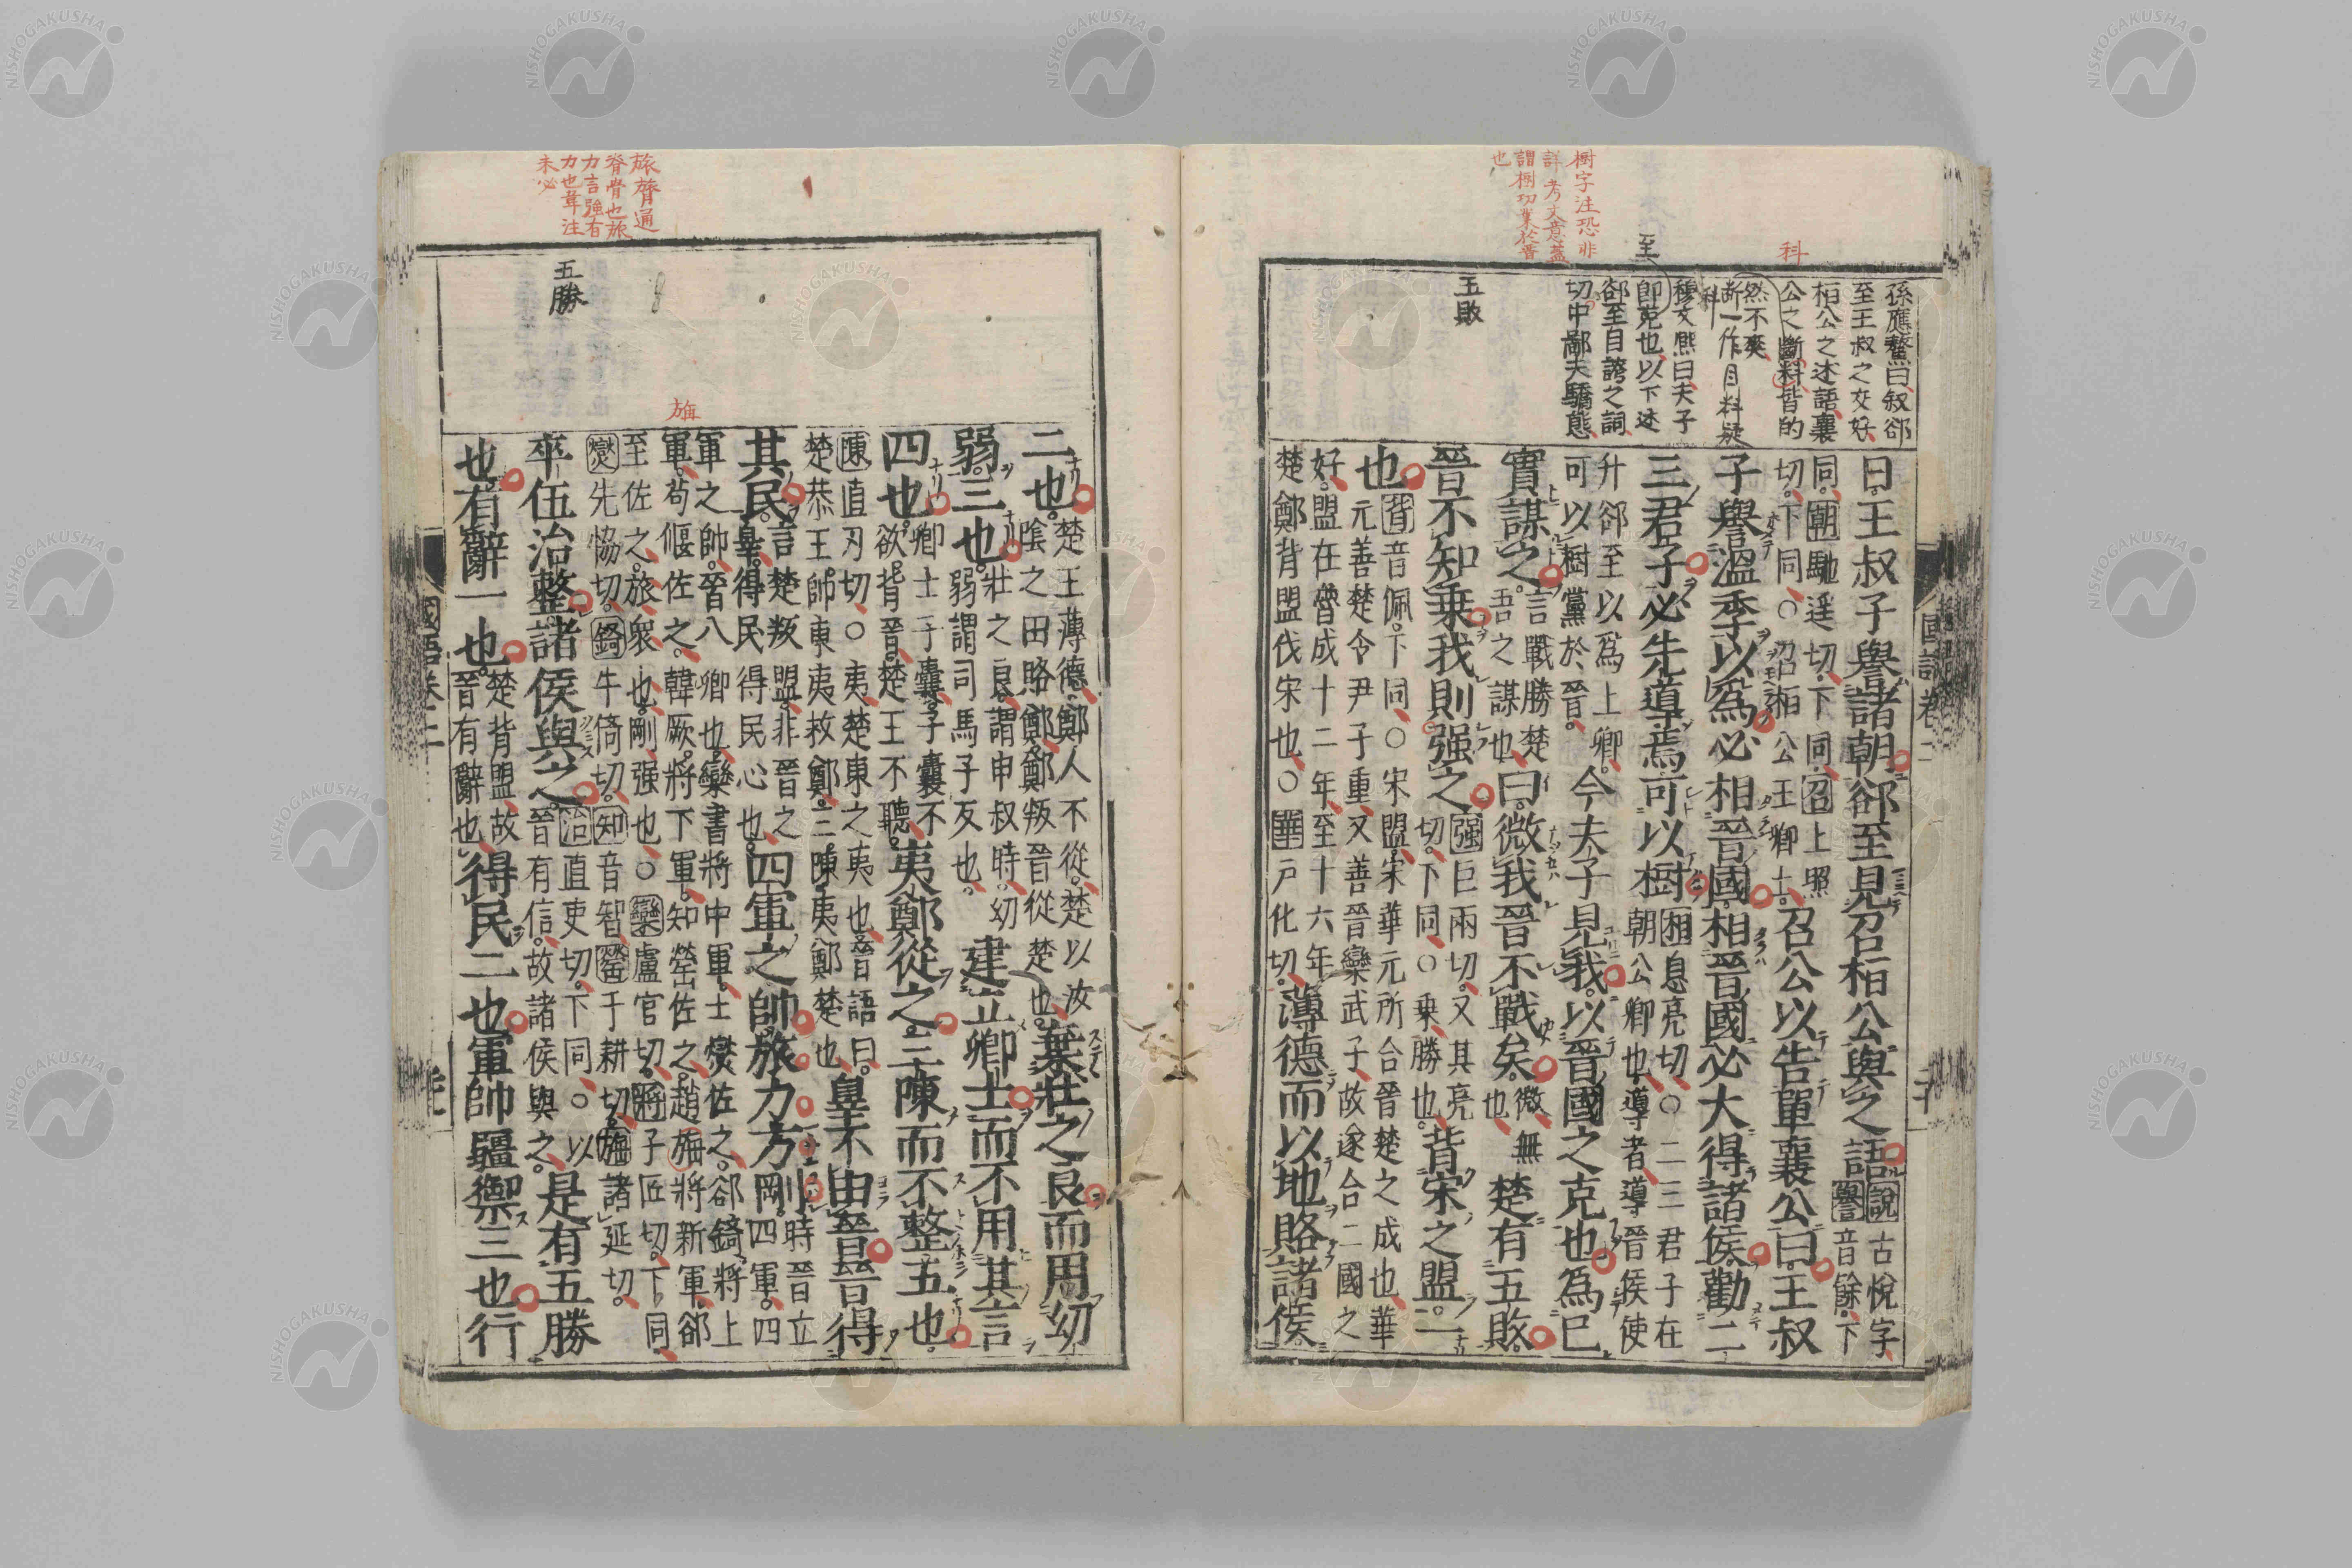 科
至
樹字注恐非
詳考文意蓋
謂樹功業於晉
也
孫應鰲曰叙郤
至王叔之交好
相公之述語襄
公之斷料皆的
然不爽
斷一作目料疑
科
穆文熙曰夫子
卽克也以下述
郤至自誇之詞
切中鄙夫驕態
五敗
曰王叔子譽諸朝郤至見召桓公與之語
說古悅字
譽音餘下
同朝馳遥切下同召上照
切下同〇召桓公王卿士
召公以告單襄公曰王叔
子譽溫季以爲必相晉國相晉國必大得諸侯勸二
三君子必先導焉可以樹
相息亮切〇二三君子在
朝公卿也導者導晉侯使
升郤至以爲上卿
可以樹黨於晉
今夫子見我以晉國之克也爲已
實謀之
言戰勝楚
吾之謀也
曰微我晉不戰矣
微無
也
楚有五敗
晉不知乗我則强之
强巨兩切又其亮
切下同〇乗勝也
背宋之盟一
也
背音佩下同〇宋盟宋華元所合晉楚之成也華
元善楚令尹子重又善晉欒武子故遂合二國之
好盟在魯成十二年至十六年
楚鄭背盟伐宋也〇華戸化切
薄德而以地賂諸侯
國語卷二
二也
楚王薄德鄭人不從楚以汝
隂之田賂鄭鄭叛晉從楚也
棄壯之良而用幼
弱三也
壯之良謂申叔時幼
弱謂司馬子反也
建立卿士而不用其言
四也
卿士子囊子囊不
欲背晉楚王不聽
夷鄭從之三陳而不整五也
陳直刃切〇夷楚東之夷也晉語曰
楚恭王帥東夷救鄭三陳夷鄭楚也
辠不由晉晉得
其民
言楚叛盟非晉之
辠得民得民心也
四軍之帥旅力方剛
時晉立
四軍四
軍之帥晉八卿也欒書將中軍士燮佐之郤錡將上
軍荀偃佐之韓厥將下軍知罃佐之趙旃將新軍郤
至佐之旅衆也剛强也〇欒盧官切將子匠切下同
燮先協切錡牛倚切知音智罃于耕切旃諸延切
卒伍治整諸侯與之
治直吏切下同〇以
晉有信故諸侯與之
是有五勝
也有辭一也
楚背盟故
晉有辭也
得民二也軍帥疆禦三也行
旃
五勝
旅膂通
脊骨也旅
力言強有
力也韋注
未必